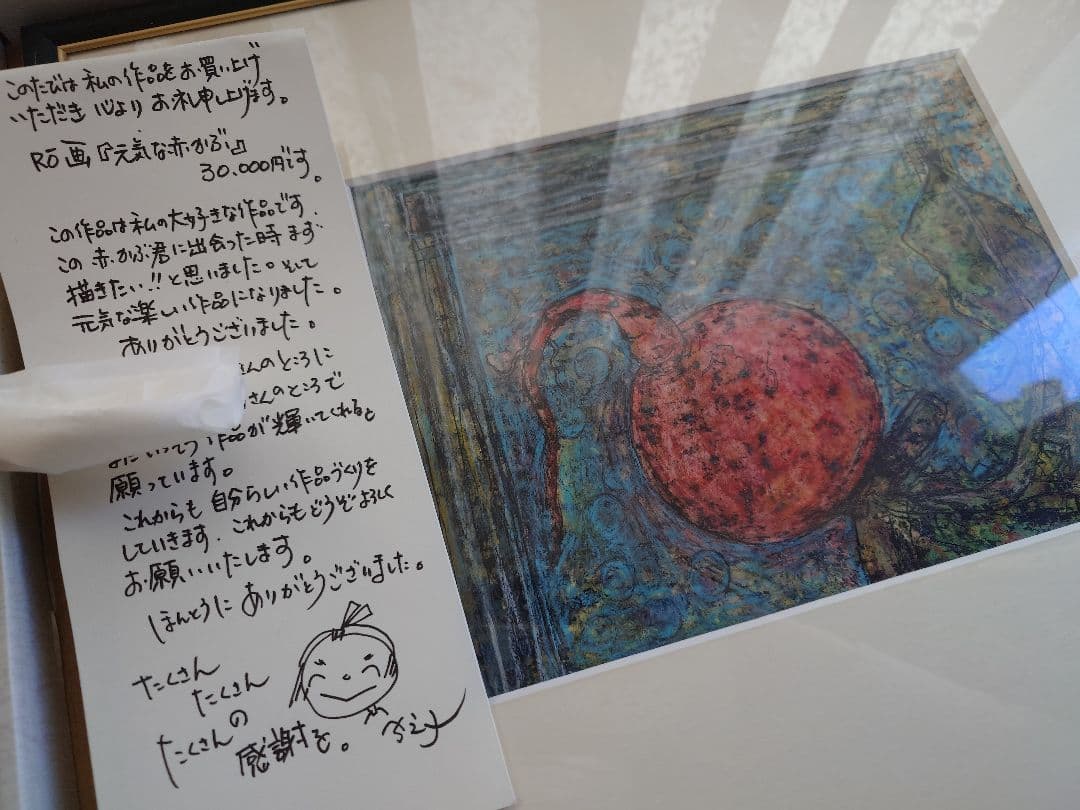 このたびは 私の作品をお買い上げ
いただき 心より お礼申し上げます。
画『元気な赤かぶ』
30,000円です。
この作品は私の大好きな作品です
この 赤かぶ君に出会った時 まず
描きたい!!と思いました。そして
元気な楽しい作品になりました。
ありがとうございました。
さんのところに
さんのところで
作品が輝いてくれると
願っています。
これからも 自分らしい作品づくりを
していきます. これからもどうぞよろしく
お願いいたします。
ほんとうに ありがとうございました。
たくさん
たくさん
の
たくさん
感謝を。